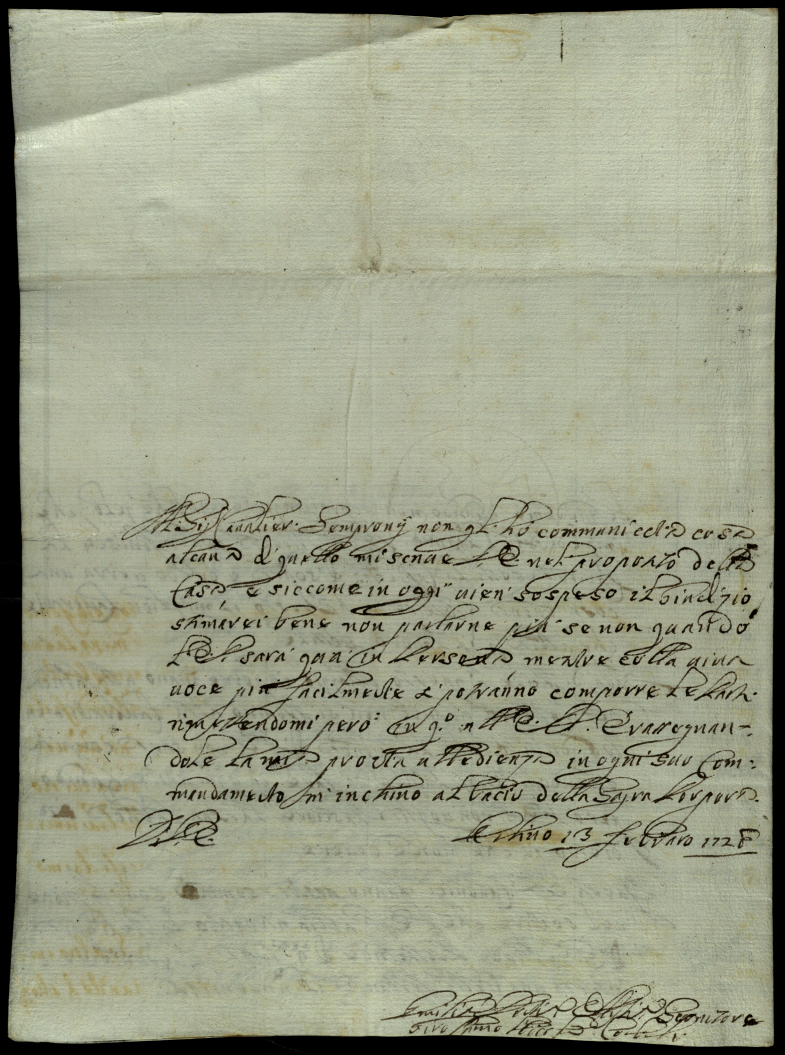 Al Sig. Cavalier Sempronij non gl'hò communicata cosa
alcuna di quello mi scrive V.E. nel proposto della
Casa e siccome in oggi vien sospeso il Giudizio
stimarei bene non parlarne più se non quando
V.E. sarà quà in Persona mentre colla viva
voce più facilmente si potranno comporre le Parti
rimettendomi però in q.to a V.E. E rassegnan-
dole la mia pronta obbedienza in ogni suo Com-
mandamento m'inchino al bacio della Sagra Porpora
D.V.E. Urbino 13 Febraro 1728
Umiliss. Servitore